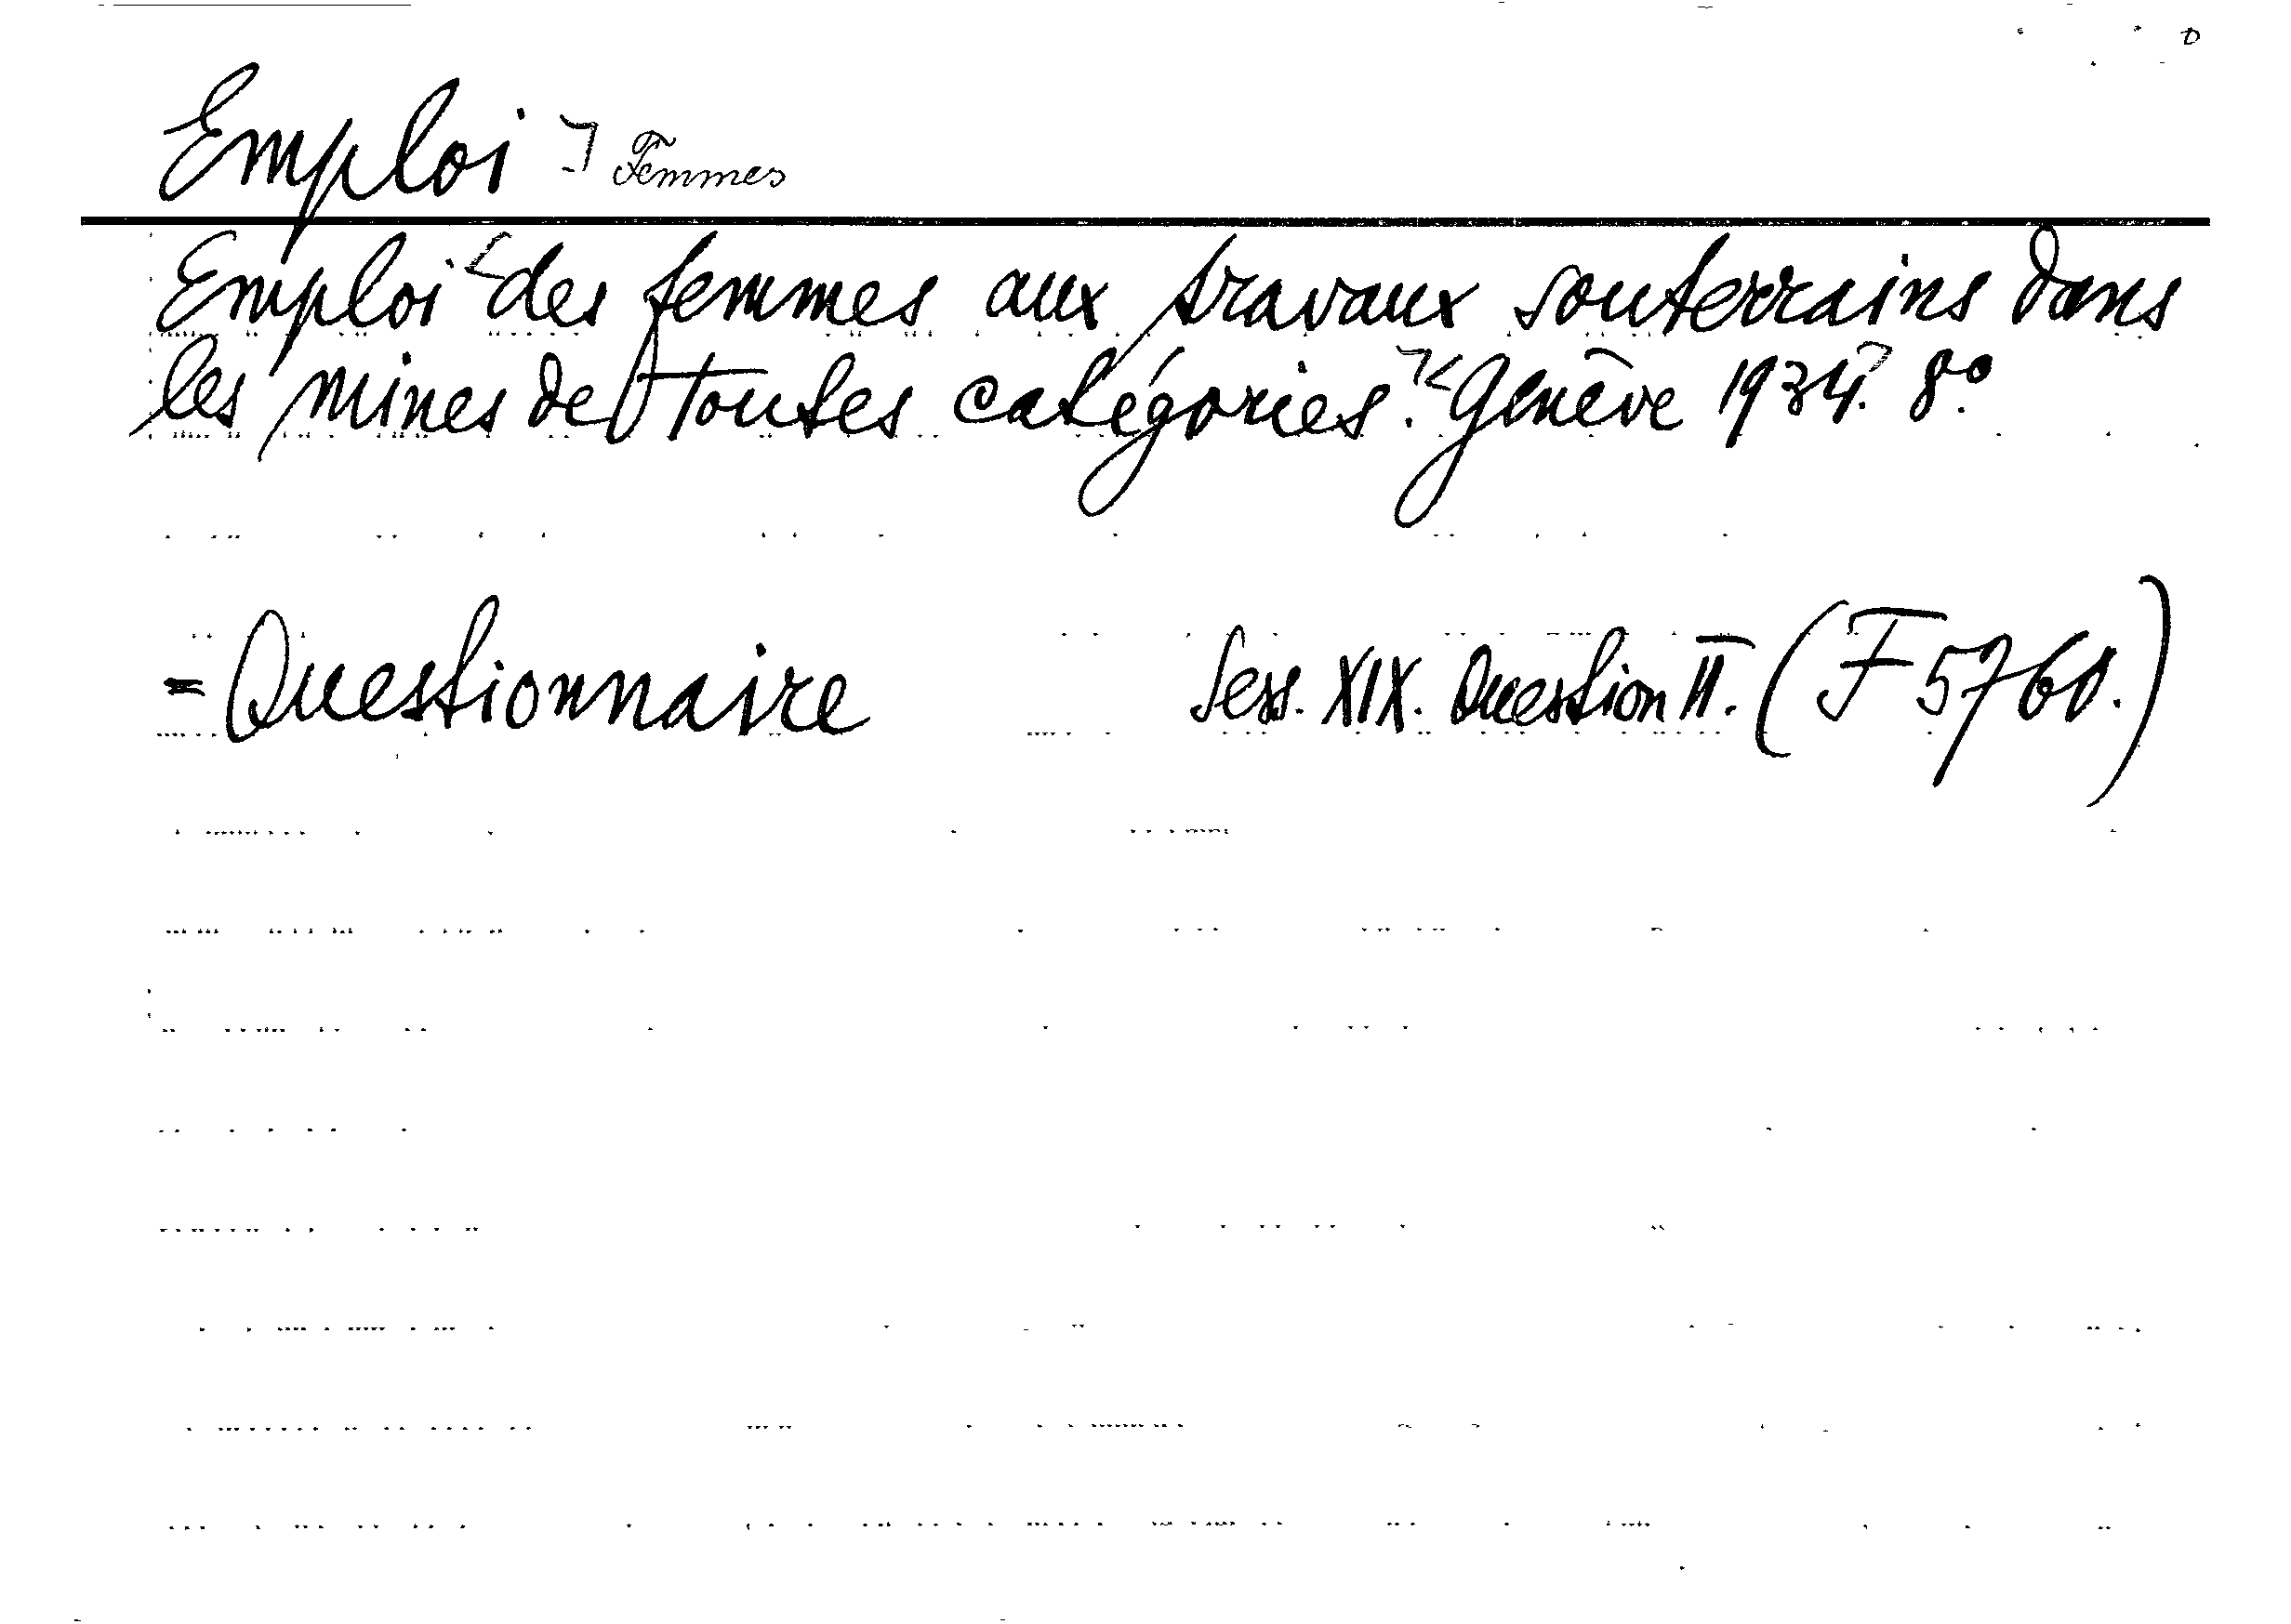 Emploi ⌐ Femmes
Emploi des femmes aux travaux souterrains dans
les mines de toutes catégories. Genève 1934. 8°.
= Questionnaire Sess. XIX. Question II. (F 5760.)